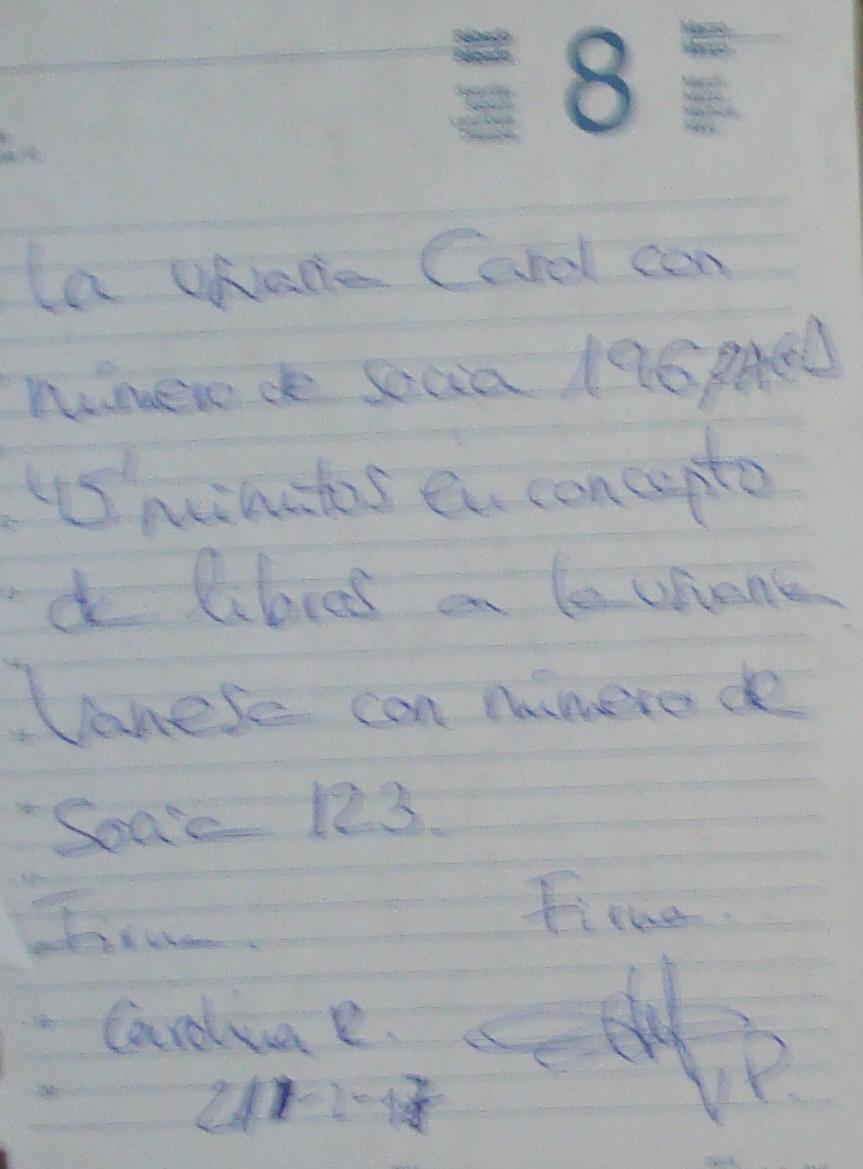 8
La usuaria Carol con
número de socia 196, PAGA
45' minutos en concepto
de libros a la usuaria
Vanesa con número de
Socia 123.
Firma. Firma.
Carolina R.
V.P.